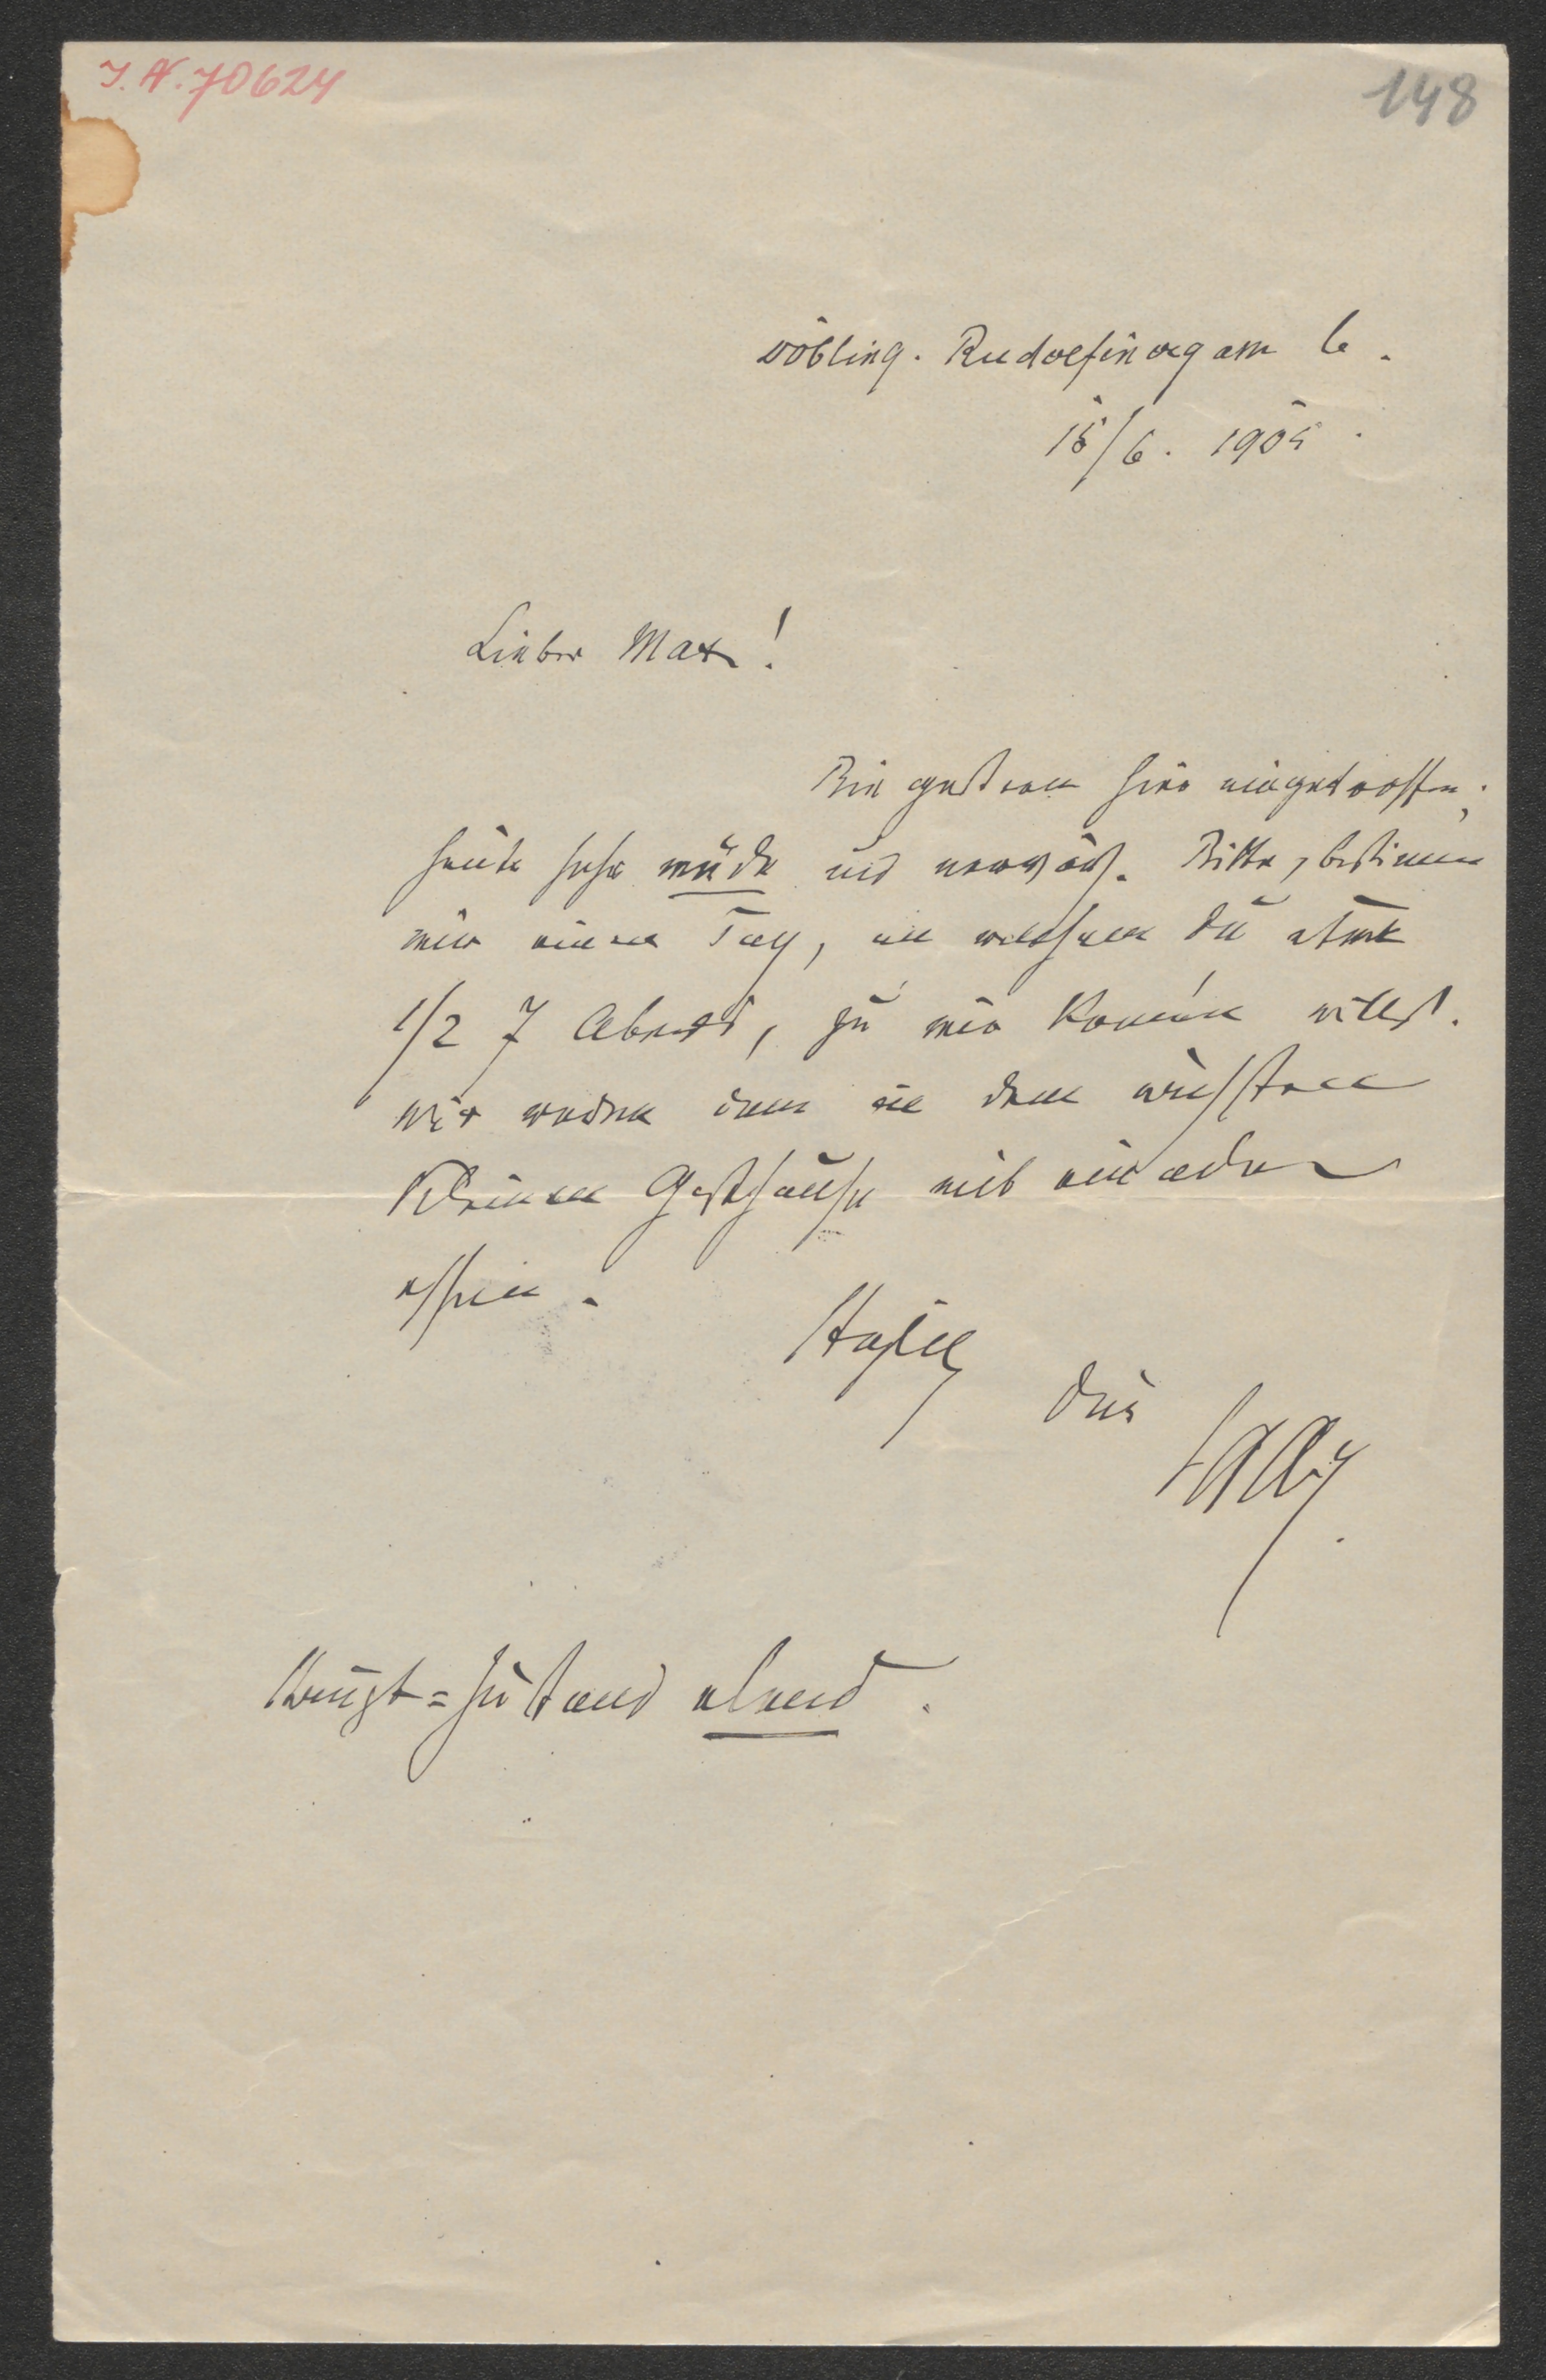 I. N. 70624
148
Döbling. Rudolfinergasse 6.
15/6. 1905.
Lieber Max!
Bin gestern hier eingetroffen;
heute sehr müde und nervös. Bitte, bestimme
mir einen Tag, an welchem Du etwa
1/2 7 Abends, zu mir kommen willst.
Wir werden dann in dem
kleinen Gasthause mit einander
essen.
Dein
Haupt=Zustand elend.